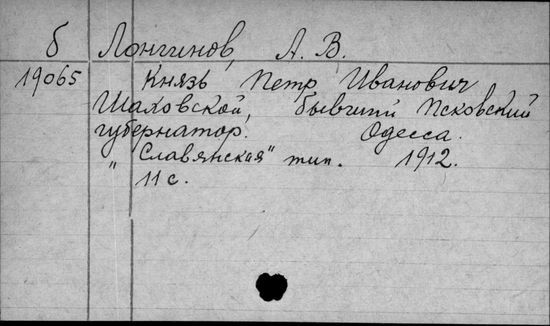 б Лонгинов, А. В.
19065 Князь Петр Иванович
Шаховской, бывший Псковский
губернатор. Одесса.
"Славянская" тип. 1912.
11 с.